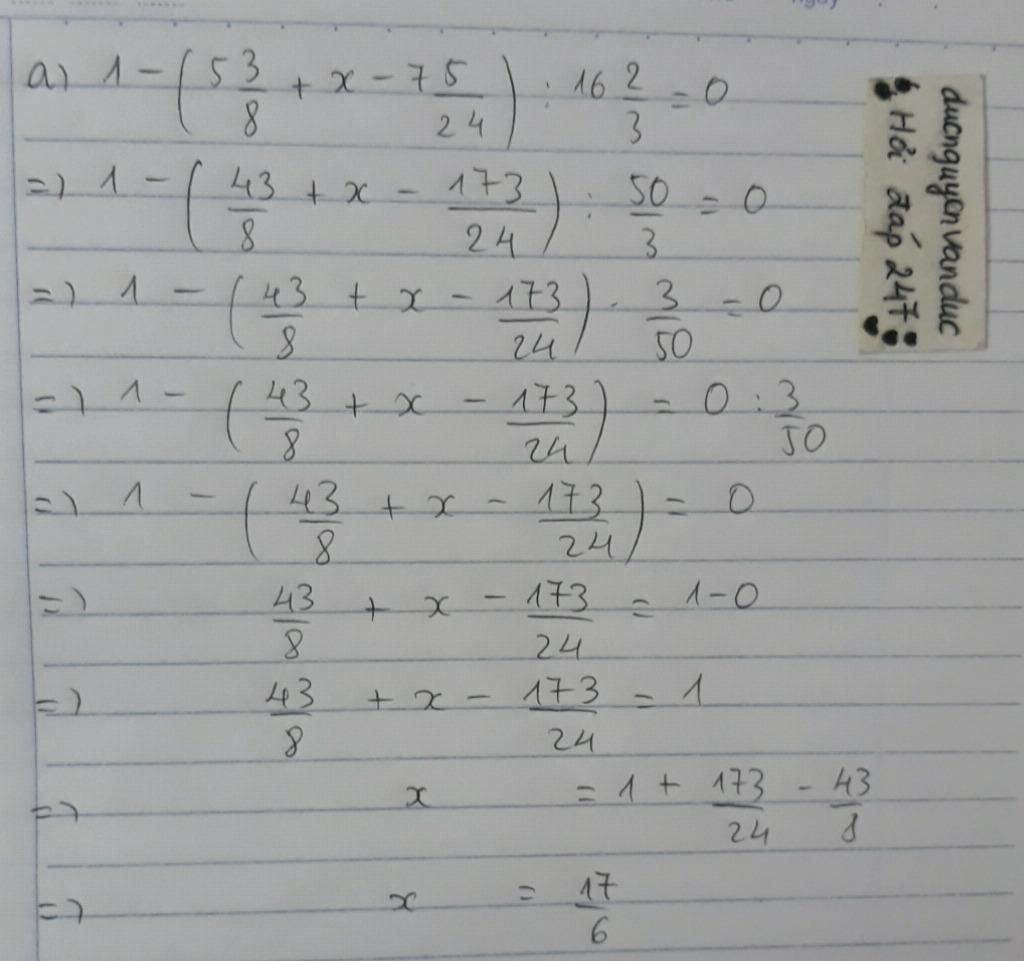 a) 1 - (5 3/8 + x - 7 5/24) : 16 2/3 = 0
=) 1 - (43/8 + x - 173/24) : 50/3 = 0
=) 1 - (43/8 + x - 173/24) . 3/50 = 0
=) 1 - (43/8 + x - 173/24) = 0 : 3/50
=) 1 - (43/8 + x - 173/24) = 0
=) 43/8 + x - 173/24 = 1-0
=) 43/8 + x - 173/24 = 1
=) x = 1 + 173/24 - 43/8
=) x = 17/6
ducnguyenvanduc
Hỏi đáp 247